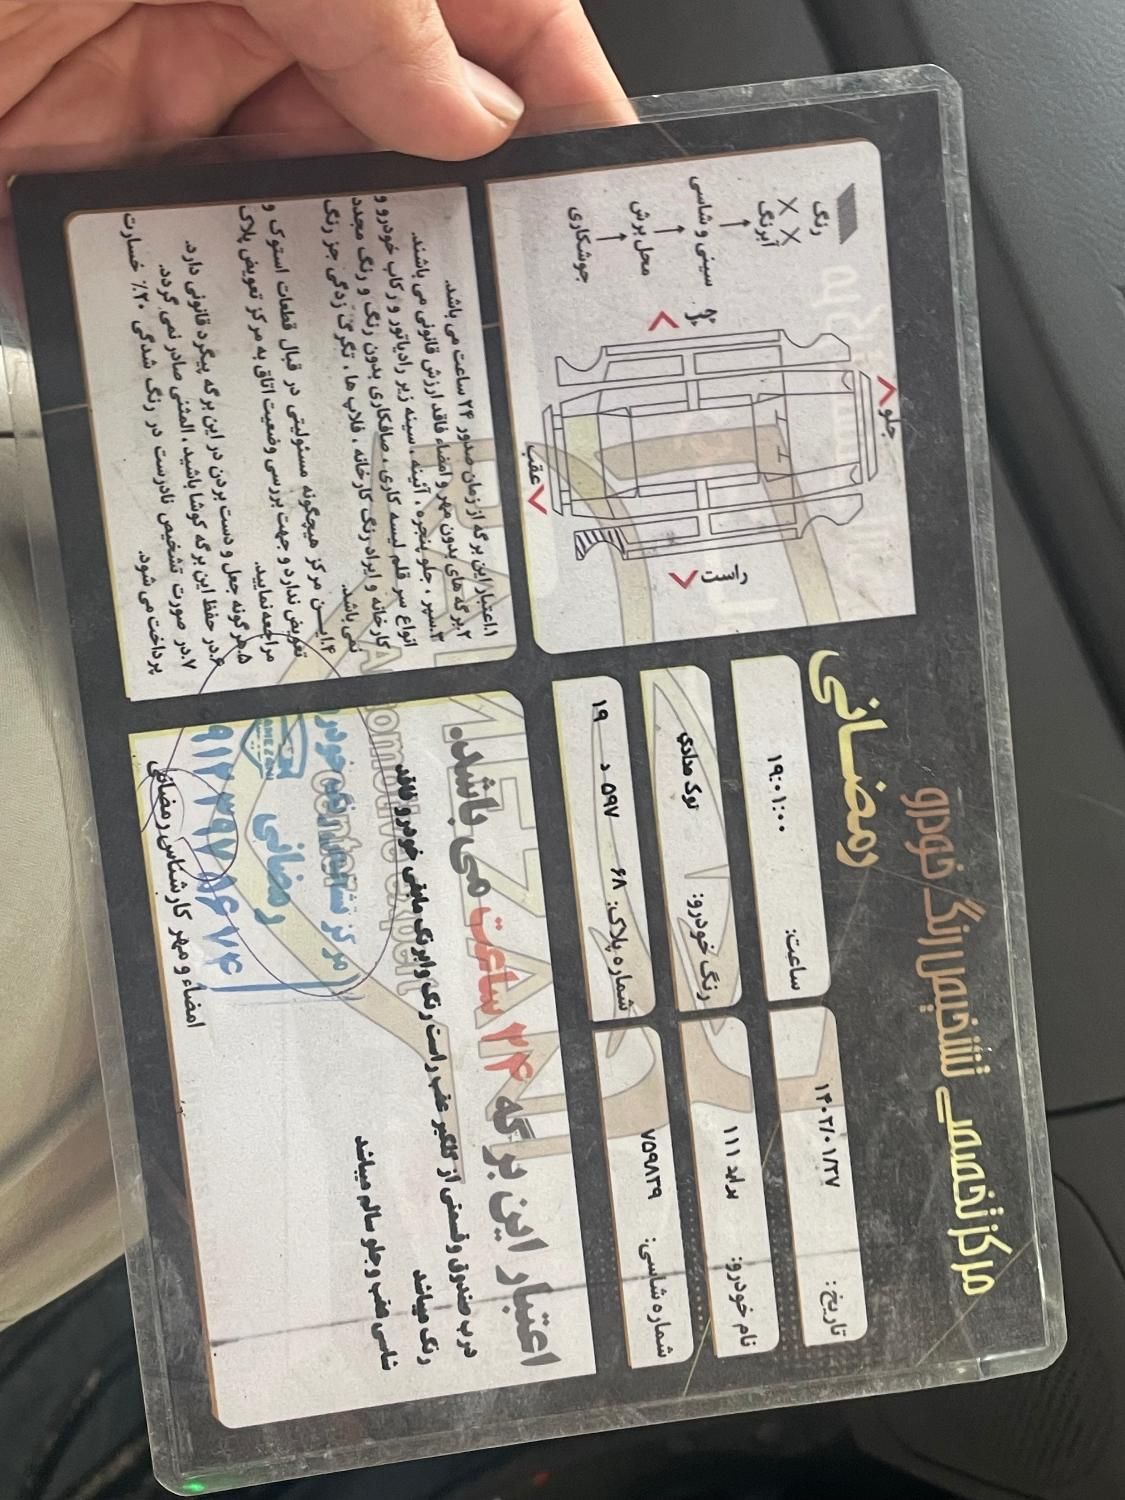 مرکز تخصصی تشخیص رنگ خودرو
رمضانی
تاریخ: ۱۴۰۲/۰۱/۲۷
ساعت: ۱۹:۰۱:۰۰
نام خودرو: پراید ۱۱۱
رنگ خودرو: نوک مدادی
شماره شاسی: ۷۵۹۸۳۹
شماره پلاک: ۶۸ ۵۹۷ د ۱۹
رنگ
آبرنگ
سینی و شاسی
محل برش
جوشکاری
جلو
راست
عقب
اعتبار این برگه ۲۴ ساعت می باشد.
درب صندوق و قسمتی از گلگیر عقب راست رنگ و ابرنگ مابقی خودرو فاقد
رنگ میباشد
شاسی عقب و جلو سالم میباشد
مرکز تشخیص رنگ خودرو
رمضانی
امضاء و مهر کارشناس رمضانی
RAMEZANI
Automotive expert
center
۱.اعتبار این برگه از زمان صدور ۲۴ ساعت می باشد.
۲.برگه های بدون مهر و امضاء فاقد ارزش قانونی می باشند.
۳.سپر ، جلو پنجره ، آئینه ، سینه زیر رادیاتور و رکاب خودرو و
انواع سر قلم لیسه کاری ، صافکاری بدون رنگ و رنگ مجدد
کارخانه و ایراد رنگ کارخانه ، قلاب ها ، تگرگ زدگی جز رنگ
نمی باشد.
۴.ایـن مرکز هیچگونه مسئولیتی در قبال قطعات استوک و
تعویض ندارد و جهت بررسی وضعیت اتاق به مرکز تعویض پلاک
مراجعه نمایید.
۵.هرگونه جعل و دست بردن در این برگه پیگرد قانونی دارد.
۶.در حفظ این برگه کوشا باشید ، المثنی صادر نمی گردد.
۷.در صورت تشخیص نادرست در رنگ شدگی ۲۰٪ خسارت
پرداخت می شود.